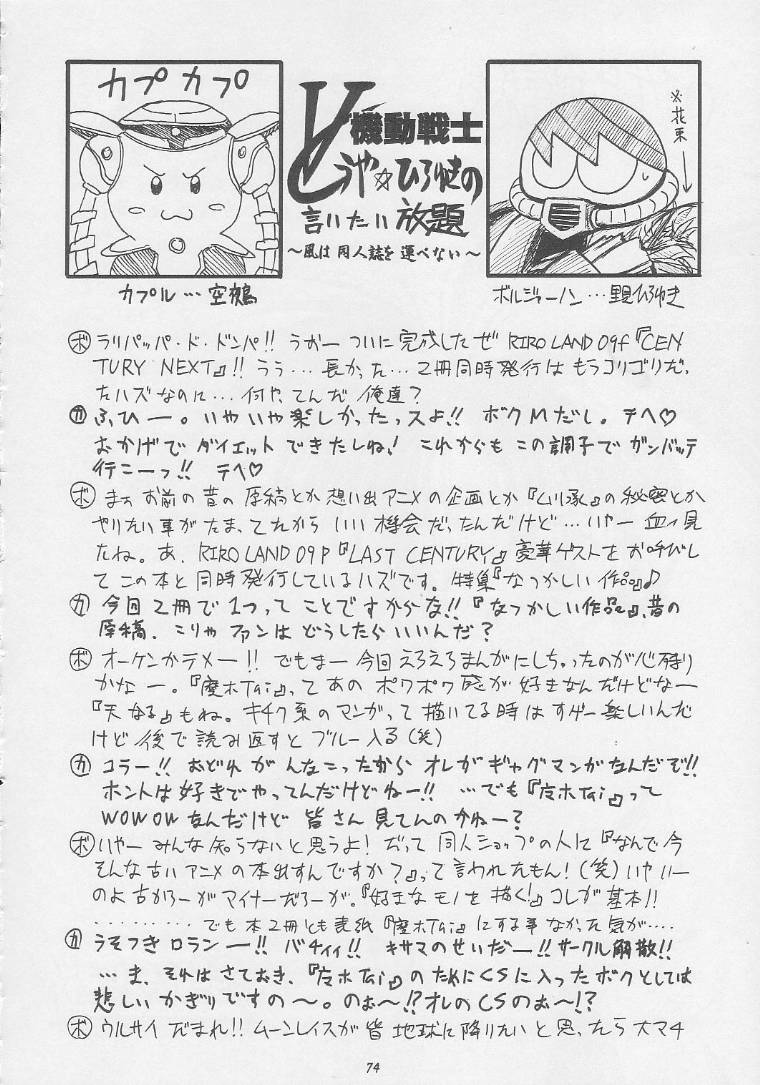 カプカプ
機動戦士
とうや☆ひろゆきの
言いたい放題
～風は同人誌を運べない～
※花束
カプル…空鵺
ボルジャーノン…ひろゆき
ボ ラリパッパ・ド・ドンパ!! うおーついに完成したぜ RIRO LAND 09f『CEN
TURY NEXT』!! うぅ…長かった…2冊同時発行はもうコリゴリだ。
たハズなのに…何やってんだ俺達?
カ ふひー。いやいや楽しかったっスよ!! ボクMだし。テヘ♡
おかげでダイエットできたしね! これからもこの調子でガンバッテ
行こーっ!! テヘ♡
ボ まぁお前の昔の原稿とか想い出アニメの企画とか の秘密とか
やりたい事がたまってたからいい機会だったんだけど…いやー血ィ見
たね。あ、RIRO LAND 09P『LAST CENTURY』豪華ゲストをお呼びし
てこの本と同時発行しているハズです。特集『なつかしい作品』♪
カ 今回2冊で1つってことですからな!! 『なつかしい作品』、昔の
原稿、こりゃファンはどうしたらいいんだ?
ボ オーケンかテメー!! でもまー今回えろえろまんがにしちゃったのが心残り
かなー。『魔ホTai』ってあのポワポワ感が好きなんだけどなー
『天なる』もね。キチク系のマンガって描いてる時はすげー楽しいんだ
けど後で読み返すとブルー入る(笑)
カ コラー!! おどれがんなこったからオレがギャグマンがなんだぞ!!
ホントは好きでやってんだけどねー!! …でも『魔ホTai』って
WOWOWなんだけど皆さん見てんのかねー?
ボ いやーみんな知らないと思うよ! だって同人ショップの人に『なんで今
そんな古いアニメの本出すんですか?』って言われたもん!(笑)いやいー
のよ古かろーがマイナーだろーが。『好きなモノを描く!』コレが基本!!
………でも本2冊とも表紙『魔ホTai』にする事なかった気が‥‥
カ うそつきロランー!! バチィィ!! キサマのせいだー!! サークル解散!!
…ま、それはさておき、『魔ホTai』のためにCSに入ったボクとしては
悲しいかぎりですの～。のぉ～!? オレのCSのぉ～!?
ボ ウルサイだまれ!! ムーンレイスが皆地球に降りたいと思ったら大マチ
74